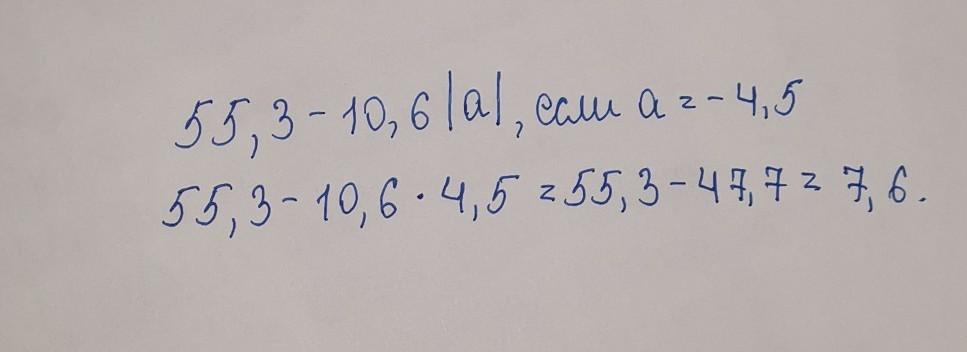 55,3 - 10,6 |a|, если a = -4,5
55,3 - 10,6 · 4,5 = 55,3 - 47,7 = 7,6.